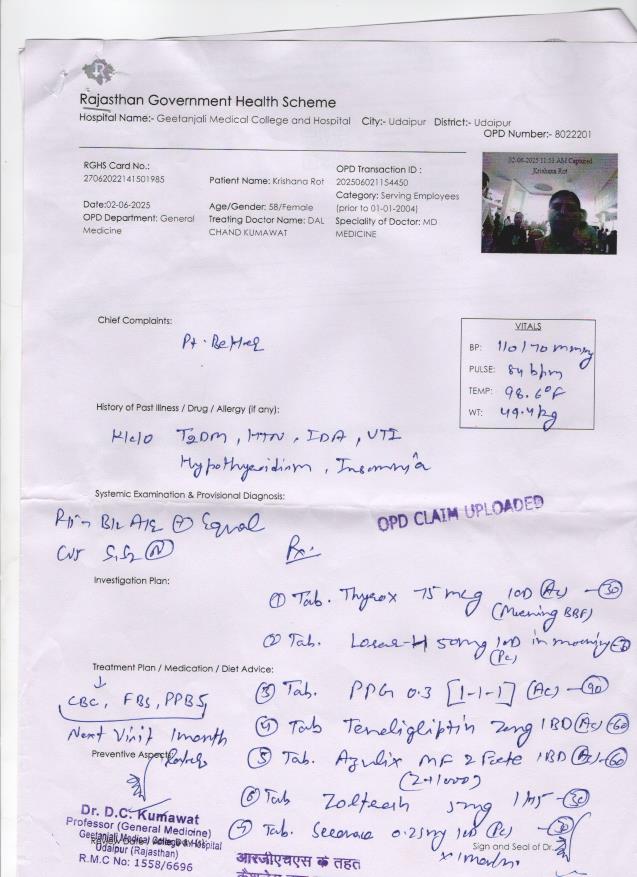 R
Rajasthan Government Health Scheme
Hospital Name:- Geetanjali Medical College and Hospital City:- Udaipur District:- Udaipur
OPD Number:- 8022201
RGHS Card No.: 27062022141501985
Patient Name: Krishana Rot
OPD Transaction ID : 202506021154450
Date:02-06-2025
Age/Gender: 58/Female
Category: Serving Employees (prior to 01-01-2004)
OPD Department: General Medicine
Treating Doctor Name: DAL CHAND KUMAWAT
Speciality of Doctor: MD MEDICINE
02-06-2025 11:53 AM Captured
Krishana Rot
Chief Complaints:
Pt. Better
VITALS
BP: 110/70 mmHg
PULSE: 84 bpm
TEMP: 98.6°F
WT: 49.4 kg
History of Past Illness / Drug / Allergy (if any):
K/c/o T2DM, HTN, IDA, UTI
Hypothyroidism, Insomnia
Systemic Examination & Provisional Diagnosis:
B/L AE + Equal
CVS S1S2 N
OPD CLAIM UPLOADED
Rx.
Investigation Plan:
① Tab. Thyrox 75 mcg 1OD (AC) - 30
(Morning BBF)
② Tab. Losar-H 50mg 1OD in morning
(PC)
Treatment Plan / Medication / Diet Advice:
CBC, FBS, PPBS
Next Visit 1 month
③ Tab. PPG 0.3 [1-1-1] (AC) - 90
④ Tab Teneligliptin 20mg 1BD (AC) - 60
Preventive Aspect
⑤ Tab. Azulix MF 2 Forte 1BD (AC) - 60
(2+1000)
⑥ Tab Zoltresh 5mg 1HS - 30
⑦ Tab. 0.25mg 1OD (PC) - 30
x 1 month
Sign and Seal of Dr.
Dr. D.C. Kumawat
Professor (General Medicine)
Geetanjali Medical College & Hospital
Udaipur (Rajasthan)
R.M.C No: 1558/6696
आरजीएचएस के तहत